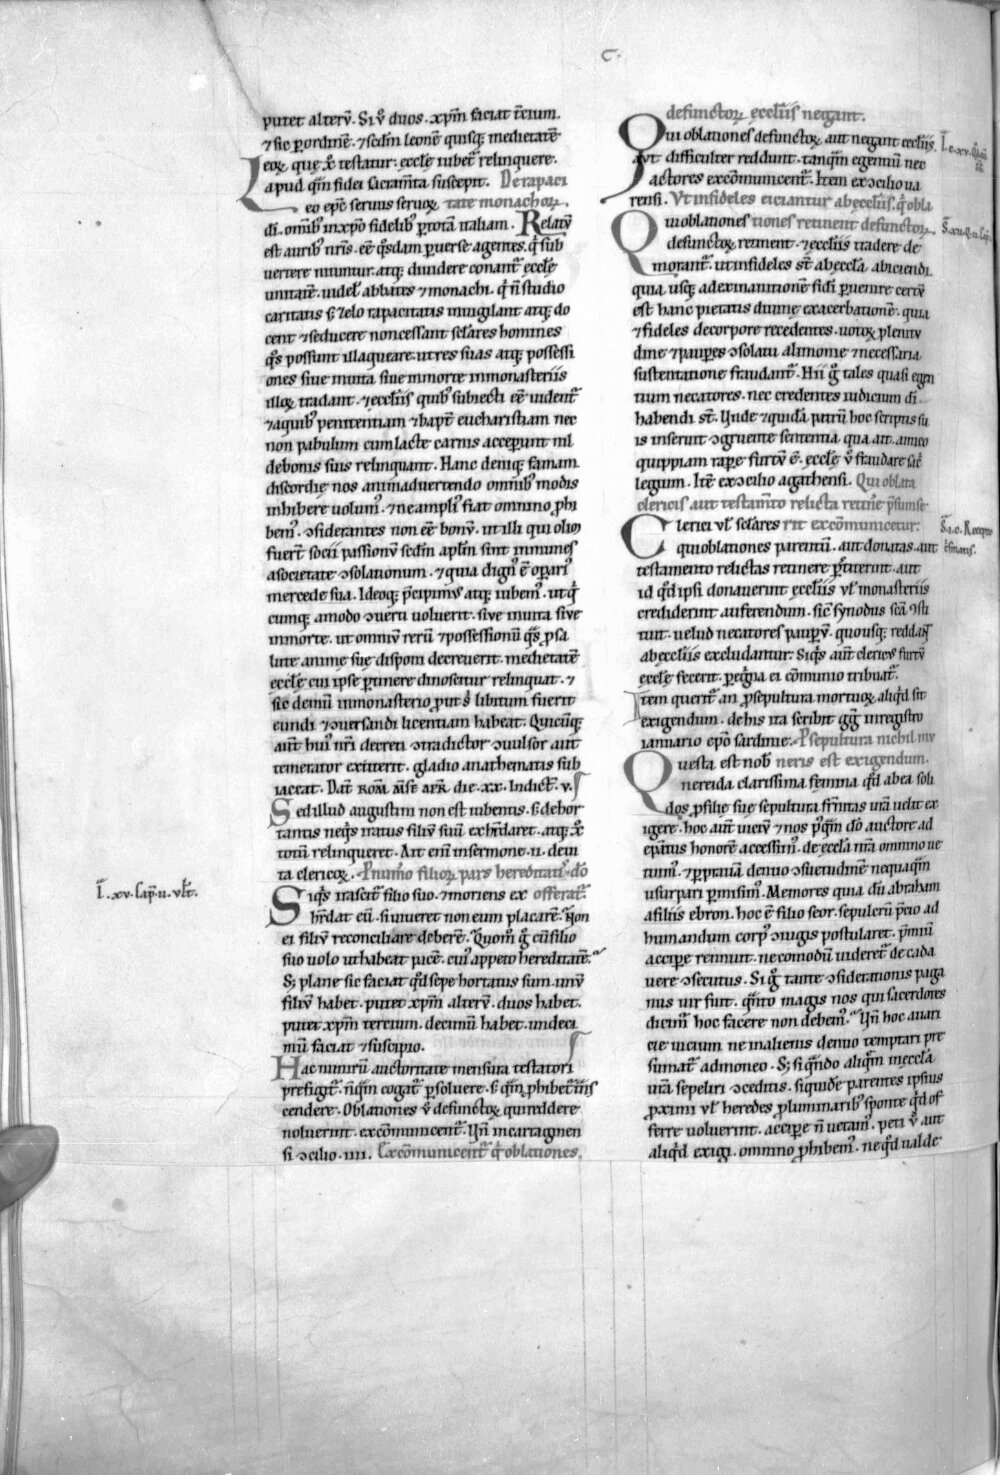 c.
putet alterū. Si ū duos. xp̄m faciat t̄cium.
⁊ sic p̄ ordinē. ⁊ sc̄dm leonē quisq; medietatē
eoꝝ. quę x̄ testatur. eccl̄e iubet̄ relinquere.
apud q̄m fidei sacram̄ta suscepit. De rapaci
Leo ep̄c seruus seruoꝝ tate monachoꝝ.
di. omīb; in xp̄o fidelib; p̄ totā italiam. Relatū
est aurib; nr̄is. eē q̄sdam peruerse agentes. q̄ sub
uertere nituntur. atq; diuidere conant̄ ęccl̄ę
unitatē. uidel; abbates ⁊ monachi. q̄ n̄ studio
caritatis s; zelo rapacitatis inuigilant atq; do
cent ⁊ seducere non cessant sc̄lares homines
q̄s possunt illaqueare. ut res suas atq; possessi
ones siue in uita siue in morte in monasteriis
illoꝝ tradant. ⁊ eccl̄iis quib; subiecti eē uident̄
⁊ a quib; penitentiam ⁊ bapt̄ eucharistiam nec
non pabulum cum lacte carnis acceperunt nil
de bonis suis relinquant. Hanc deniq; famam
discordię nos animaduertendo omīb; modis
inhibere uolum;. ⁊ ne ampli; fiat omnino p̄hi
bem;. ↄsiderantes non eē bonū. ut illi qui olim
fuer̄t socii passionū sc̄dm ap̄lm sint inmunes
a societate ↄsolationum. ⁊ quia dign; ē opari;
mercede sua. Ideoq; p̄cipim; atq; iubem;. ut q̄
cumq; amodo ↄuerti uoluerit. siue in uita siue
in morte. ut omniū rerū ⁊ possessionū q̄s p̄ sa
lute anime sue disponi decreuerit. medietatē
eccl̄e cui ipse p̄tinere dinoscitur relinquat. ⁊
sic demū in monasterio p̄ut s; libitum fuerit
eundi ⁊ ↄuersandi licentiam habeat. Quicūq;
aut̄ hui; nr̄i decreti ↄtradictor ↄuulsor aut
temerator extiterit. gladio anathematis sub
iaceat. Dat̄ rom̄ m̄se apr̄ die. xx. indict̄. v.
Sed illud augustini non est iubentis. s; dehor
tantis neq̄s iratus filiū suū exhr̄daret. atq; x̄
totū relinqueret. Ait eni in sermone. ii. de ui
ta clericoꝝ. P numo filioꝝ pars hereditat; dō
Siq̄s irascit̄ filio suo. ⁊ moriens ex offerat̄.
hr̄dat eū. si uiueret non eum placarē. Non
ei filiū reconciliare deberē. Quom̄ g̊ cū filio
suo uolo ut habeat pacē. cui; appeto hereditatē.
S; plane sic faciat q̄d sepe hortatus sum. unū
filiū habet. putet xp̄m alterū. duos habet.
putet xp̄m tercium. decimū habet. undeci
mū faciat ⁊ suscipio.
Hac nimirū auctoritate mensura testatori
prefigit̄. n̄ q̄m cogat̄ p̄soluere. s; q̄m p̄hibet̄ t̄ns
cendere. Oblationes ū defunctoꝝ qui reddere
noluerint. excōmunicent̄. Un̄ in cartaginen
si ↄcilio. iiii. Excōmunicent̄ q̄ oblationes.
defunctoꝝ ęccl̄iis negant.
Qui oblationes defunctoꝝ aut negant eccl̄iis.
aut difficulter reddunt. tanq̄m egentiū nec
actores excōmunicent̄. Item ex ↄcilio ua
rensi. Ut infideles eiciantur ab eccl̄iis. q̄ obla
Qui oblationes tiones retinent defunctoꝝ.
defunctoꝝ retinent. ⁊ eccl̄iis tradere de
morant̄. ut infideles st̄ ab eccl̄a abiciendi.
quia usq; ad exinanitionē fidei p̄uenire certū
est hanc pietatis diuine exacerbationē. quia
⁊ fideles de corpore recedentes. uotoꝝ plenitu
dine ⁊ pauperes ↄsolatu alimonie ⁊ necessaria
sustentatione fraudant̄. Hii g̊ tales quasi egen
tium necatores. nec credentes iudicium di
habendi st̄. Unde ⁊ quidā patrū hoc scriptis su
is inseruit ↄgruente sententia qua ait. amico
quippiam rapere furtū ē. eccl̄e ū fraudare sac̄
legium. Itē ex ↄcilio agathensi. Qui oblata
clericis aut testam̄to relicta retin̄e p̄sumse
Clerici ul̄ sc̄lares rit excōmunicetur:
qui oblationes parentū. aut donatas. aut
testamento relictas retinere p̄stiterint. aut
id q̄d ipsi donauerint ęccl̄iis ul̄ monasteriis
crediderint auferendum. sic̄ synodus sc̄a ↄsti
tuit. uelud necatores paupū. quousq; reddāt
ab eccl̄iis excludantur: Siq̄s aut̄ clericus furtū
eccl̄e fecerit. pegrina ei cōmunio tribuat̄.
Item querit̄ an p̄ sepultura mortuoꝝ aliq̄d sit
exigendum. de his ita scribit g̅g̅ in registro
ianuario ep̄o sardinie. P sepultura nichil mu
Questa est nob̄ neris est exigendum.
nereida clarissima femina q̄d ab ea soli
dos p̄ filie sue sepultura fr̄nitas ur̄a uelit ex
igere. hoc aut̄ uiciū ⁊ nos p;q̄m dō auctore ad
ep̄atus honorē accessim;. de eccl̄a nr̄a omnino ue
tuim;. ⁊ p̄rauā denuo ↄsuetudinē nequaq̄m
usurpari p̄misim;. Memores quia dū abraham
a filiis ebron. hoc ē filio seor. sepulcrū p̄cio ad
humandum corp; ↄiugis postularet. p̄miū
accipe rennuit. ne comodū uideret̄ de cada
uere ↄsecutus. Si g̊ tante ↄsiderationis paga
nus uir fuit. q̄nto magis nos qui sacerdotes
dicim̄ hoc facere non debem;. Un̄ hoc auari
cie uicium ne in alienis denuo temptari pre
sumat̄ admoneo. S; siq̄ndo aliq̄m in eccl̄a
ur̄a sepeliri ↄceditis. siquidē parentes ipsius
p̄ximi ul̄ heredes p̄ luminarib; sponte q̄d of
ferre uoluerint. accipe n̄ uetam;. peti ū aut
aliq̄d exigi. omnino p̄hibem;. ne q̄d ualde